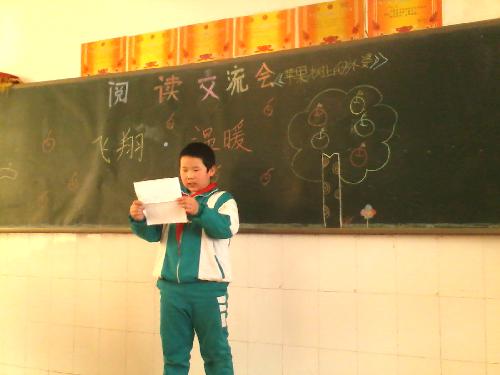 阅读交流会《苹果树上的外婆》
飞翔·温暖